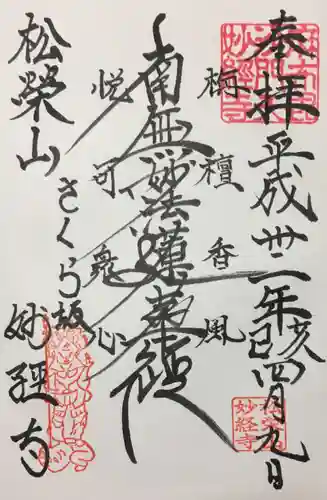 奉拝
平成丗一年己亥四月九日
栴檀香風
南無妙法蓮華経
悦可衆心
松榮山
さくら坂
妙経寺
妙経寺